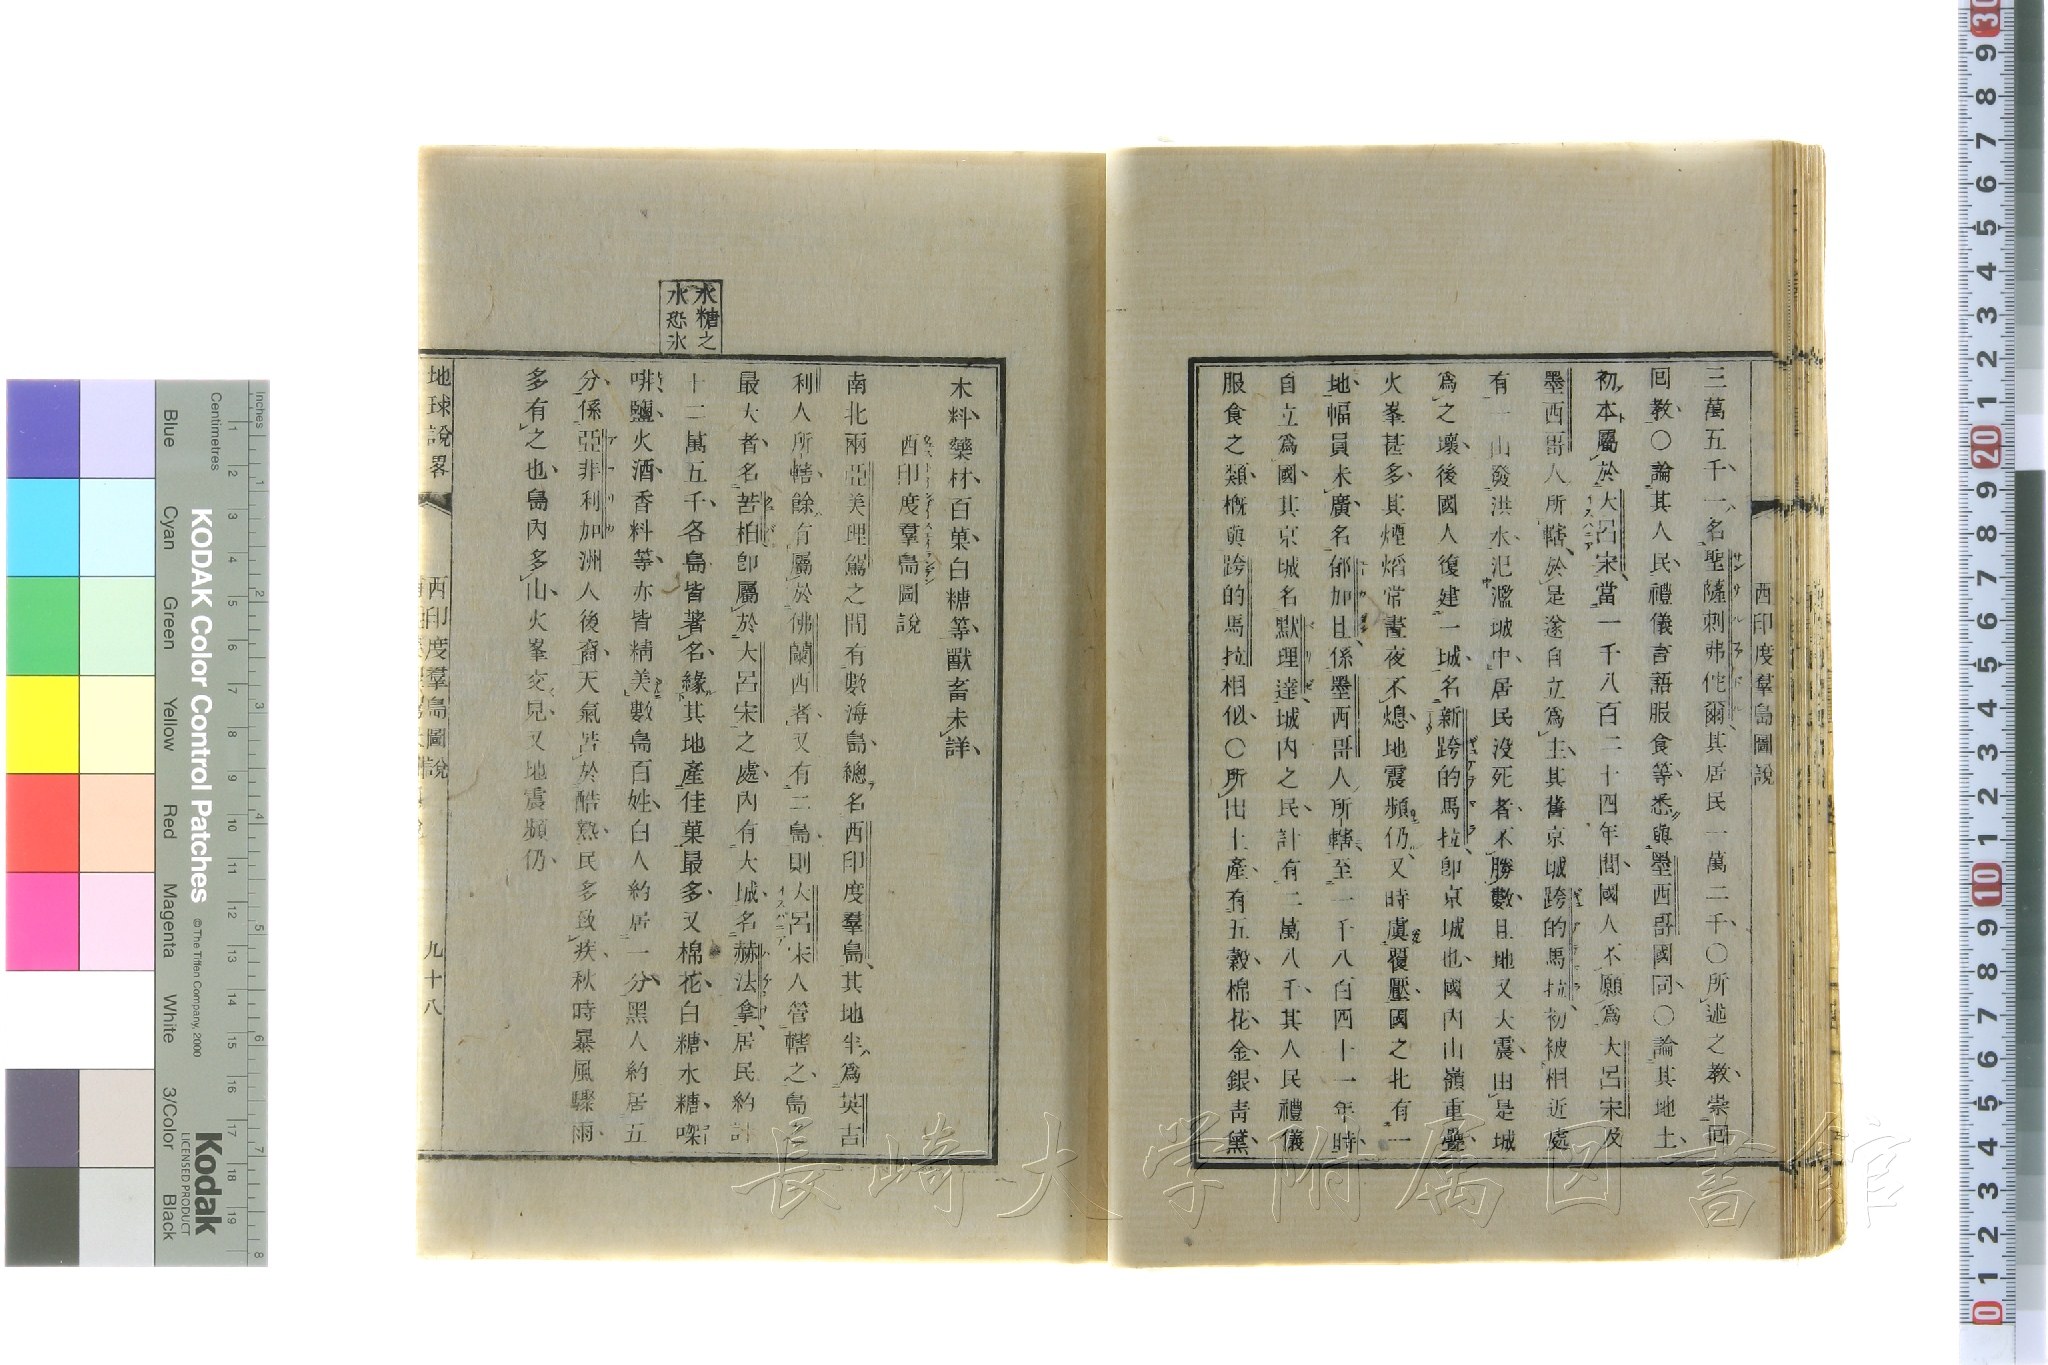 西印度羣島圖說
三萬五千一名聖薩刺弗佗爾其居民一萬二千〇所述之教崇回
回教〇論其人民禮儀言語服食等悉與墨西哥國同〇論其地土
初本屬於大呂宋當一千八百二十四年間國人不願爲大呂宋及
墨西哥人所轄於是遂自立爲主其舊京城跨的馬拉初被相近處
有一山發洪水氾濫城中居民沒死者不勝數且地又大震由是城
爲之壞後國人復建一城名新跨的馬拉卽京城也國內山嶺重疊
火峯甚多其煙熖常晝夜不熄地震頻仍又時虞覆壓國之北有一
地幅員未廣名郁加且係墨西哥人所轄至一千八百四十一年時
自立爲國其京城名默理達城內之民計有二萬八千其人民禮儀
服食之類槪與跨的馬拉相似〇所出土產有五穀棉花金銀靑黛
木料藥材百菓白糖等獸畜未詳
西印度羣島圖說
南北兩亞美理駕之間有數海島總名西印度羣島其地半爲英吉
利人所轄餘有屬於佛蘭西者又有二島則大呂宋人管轄之島之
最大者名苦柏卽屬於大呂宋之處內有大城名赫法拿居民約計
十二萬五千各島皆著名緣其地產佳菓最多又棉花白糖水糖㗎
啡鹽火酒香料等亦皆精美數島百姓白人約居一分黑人約居五
分係亞非利加洲人後裔天氣皆於酷熱民多致疾秋時暴風驟雨
多有之也島內多山火峯交見又地震頻仍
水糖之
水恐氷
地球說畧
西印度羣島圖說
九十八
長崎大学附属図書館
KODAK Color Control Patches
© The Tiffen Company, 2000
Kodak
LICENSED PRODUCT
Inches
Centimetres
Blue
Cyan
Green
Yellow
Red
Magenta
White
3/Color
Black